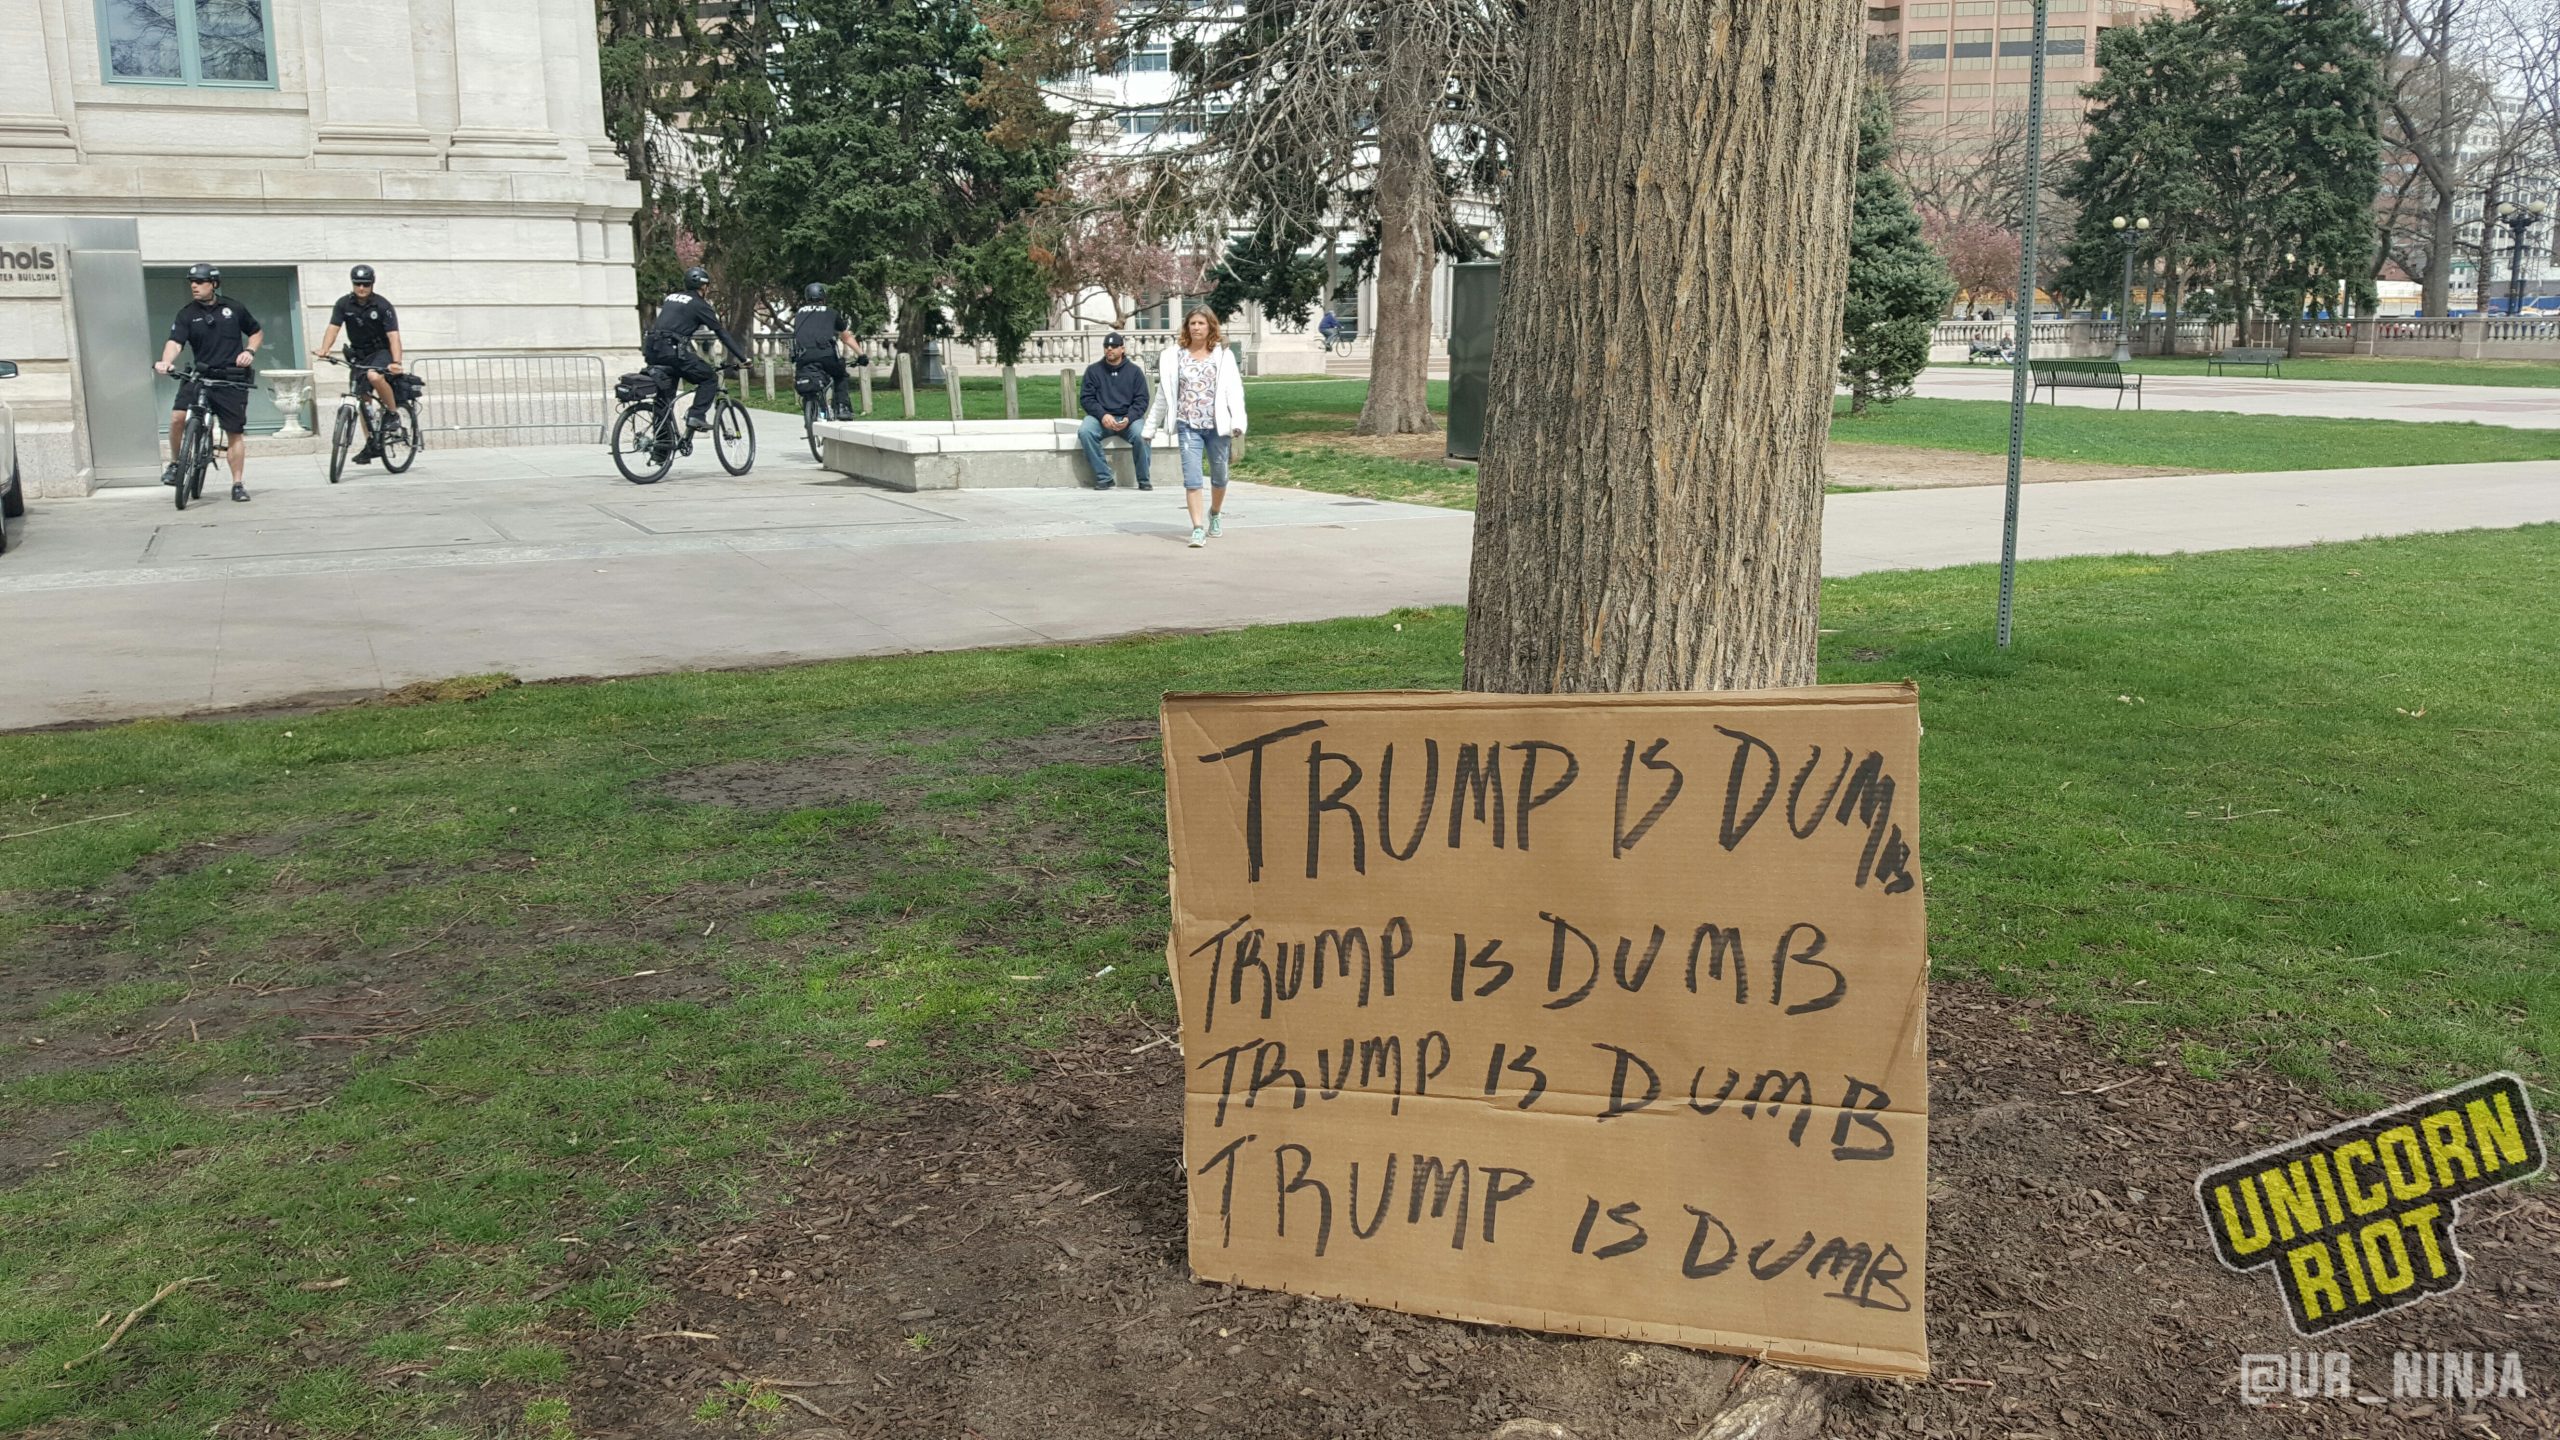 hols
TER BUILDING
POLICE
POLICE
TRUMP IS DUMB
TRUMP IS DUMB
TRUMP IS DUMB
TRUMP IS DUMB
UNICORN
RIOT
@UR_NINJA